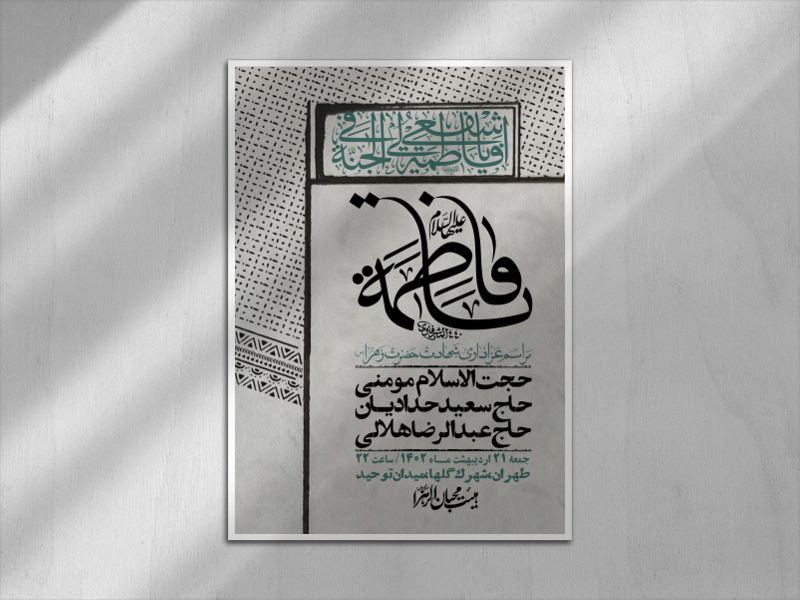 یا فاطمة اشفعی لی فی الجنة
فاطمة
علیهاالسلام
مراسم عزاداری شهادت حضرت زهرا(س)
حجت الاسلام مومنی
حاج سعید حدادیان
حاج عبدالرضا هلالی
جمعه ۲۱ اردیبهشت ماه ۱۴۰۲ / ساعت ۲۲
طهران، شهرک گلها، میدان توحید
هیئت محبان الزهرا